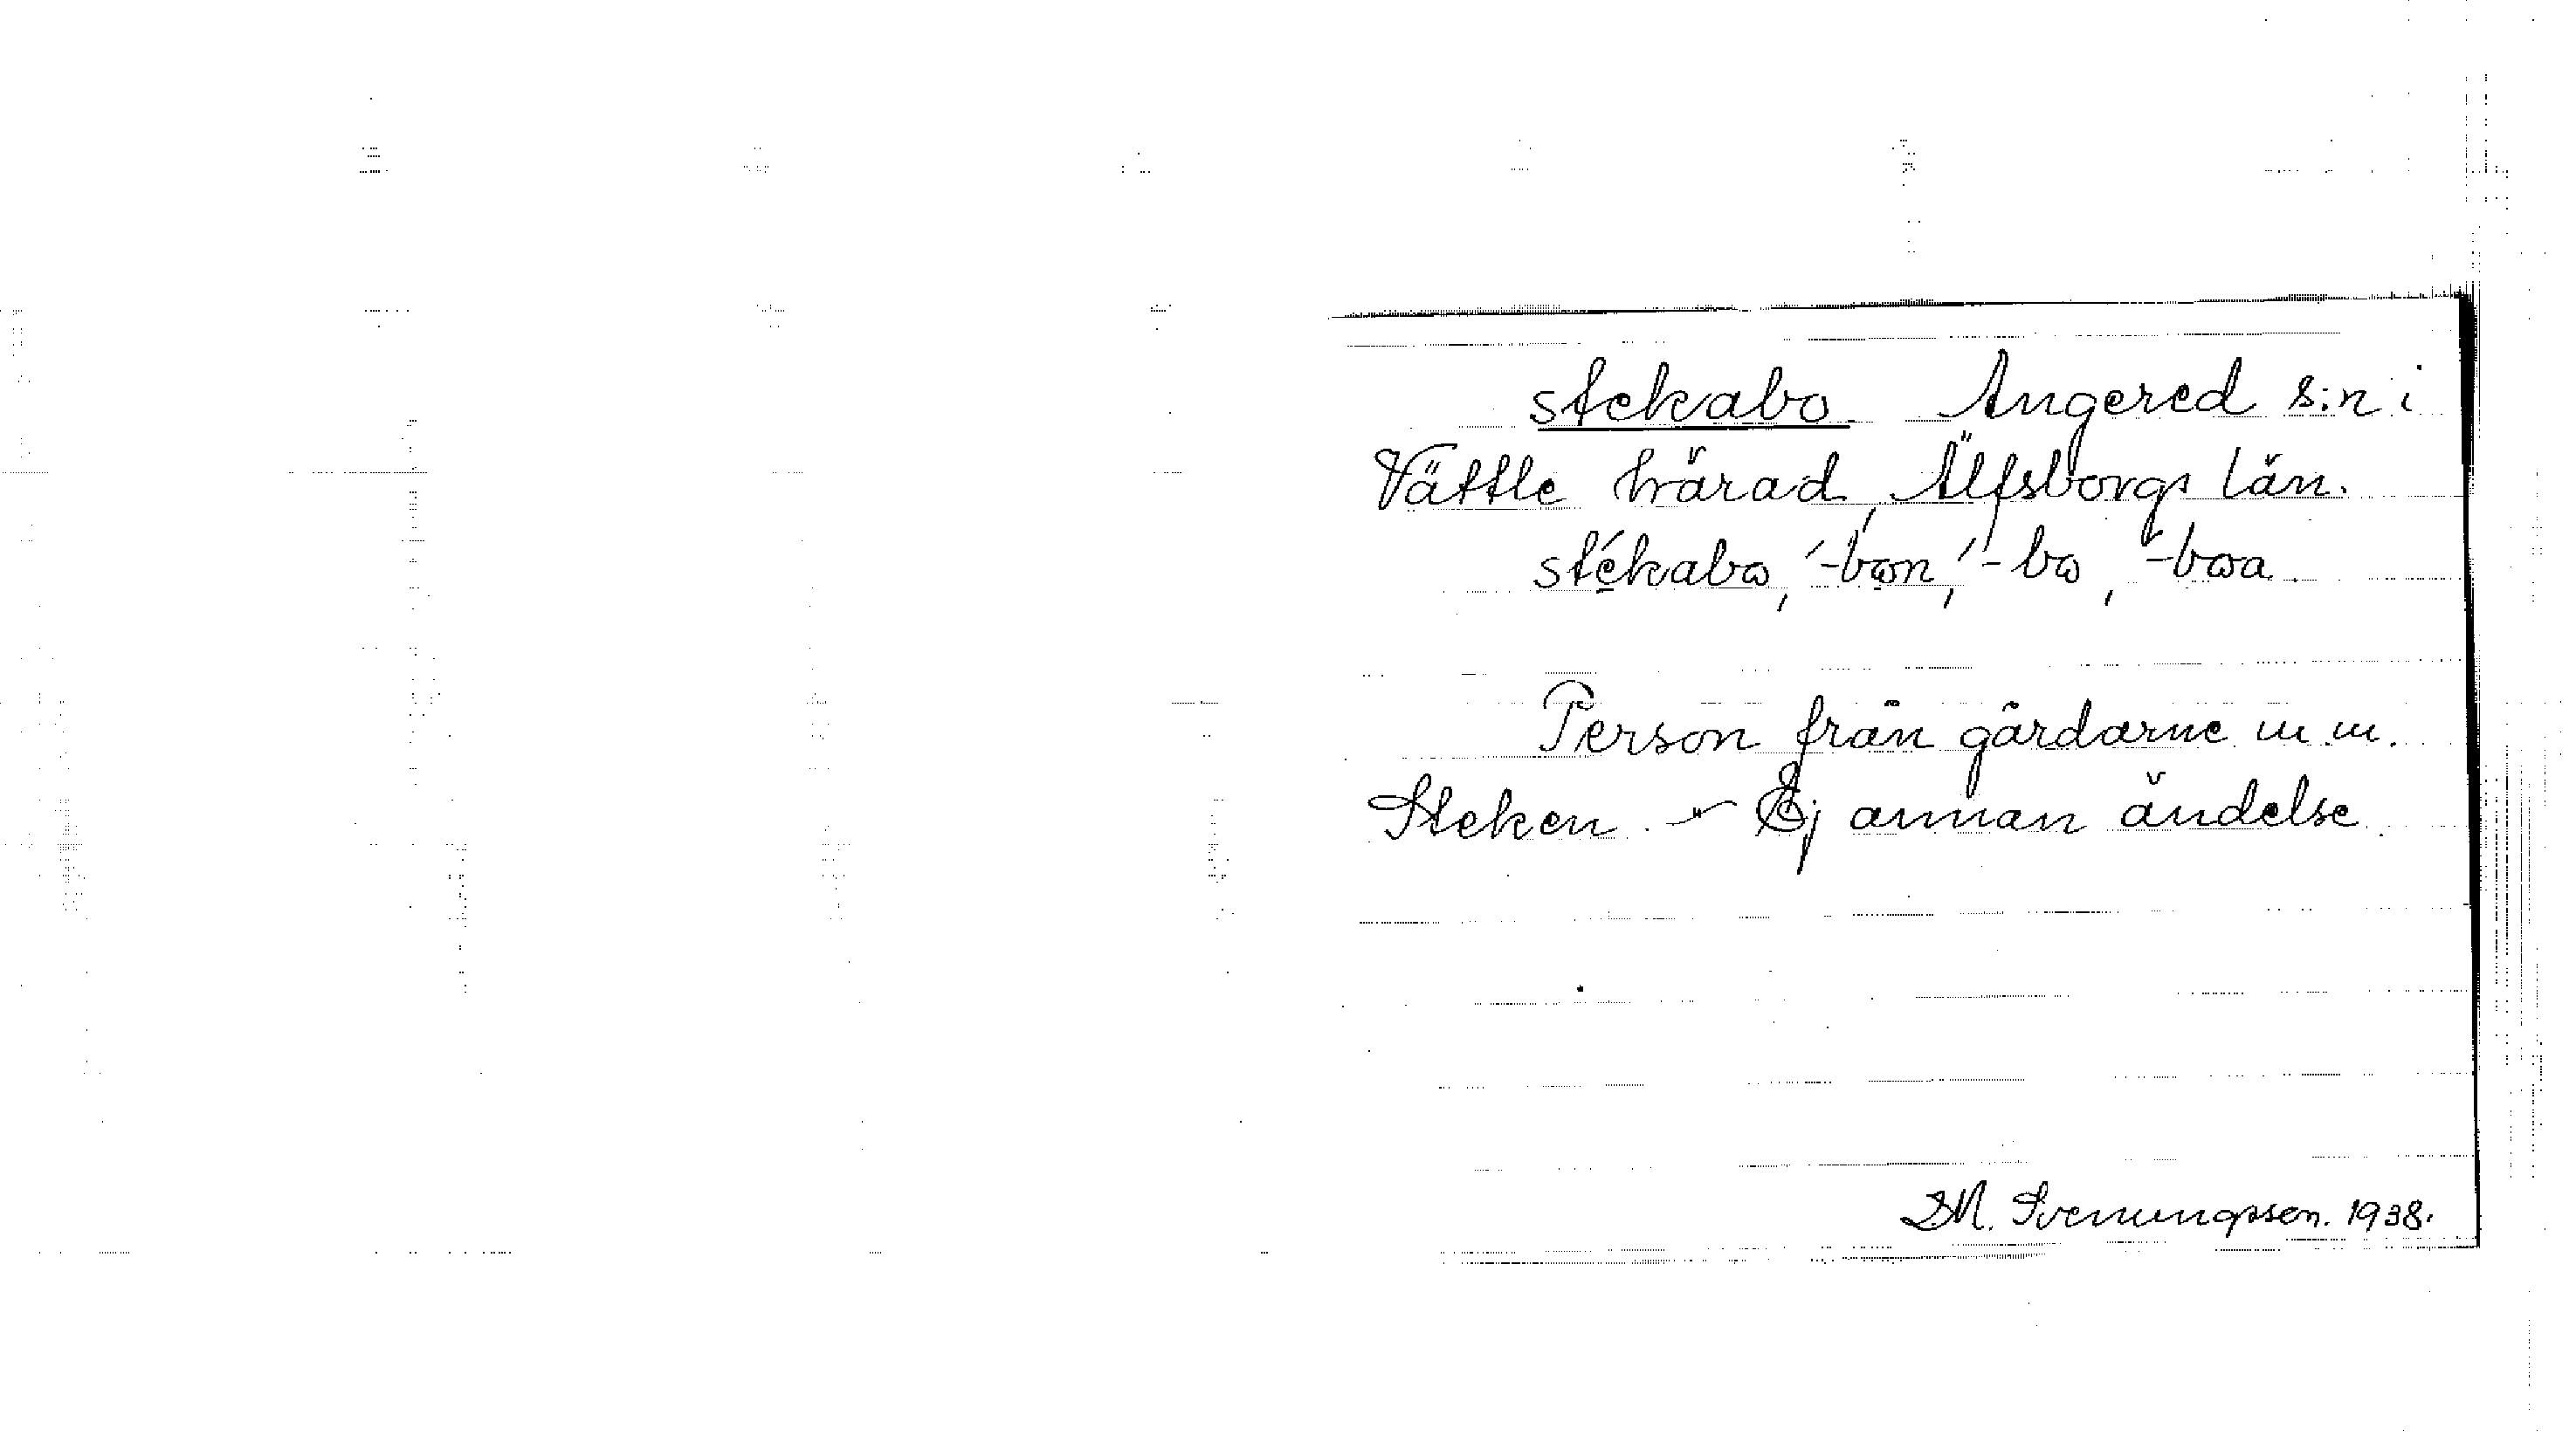 stekabo Angered s:n i
Vättle härad, Älfsborgs län.
stékabω, ´-bωn, ´-bω, ´-bωa.
Person från gårdarne m.m.
Steken. - Ej annan ändelse.
S.M. Svenungsson. 1938.